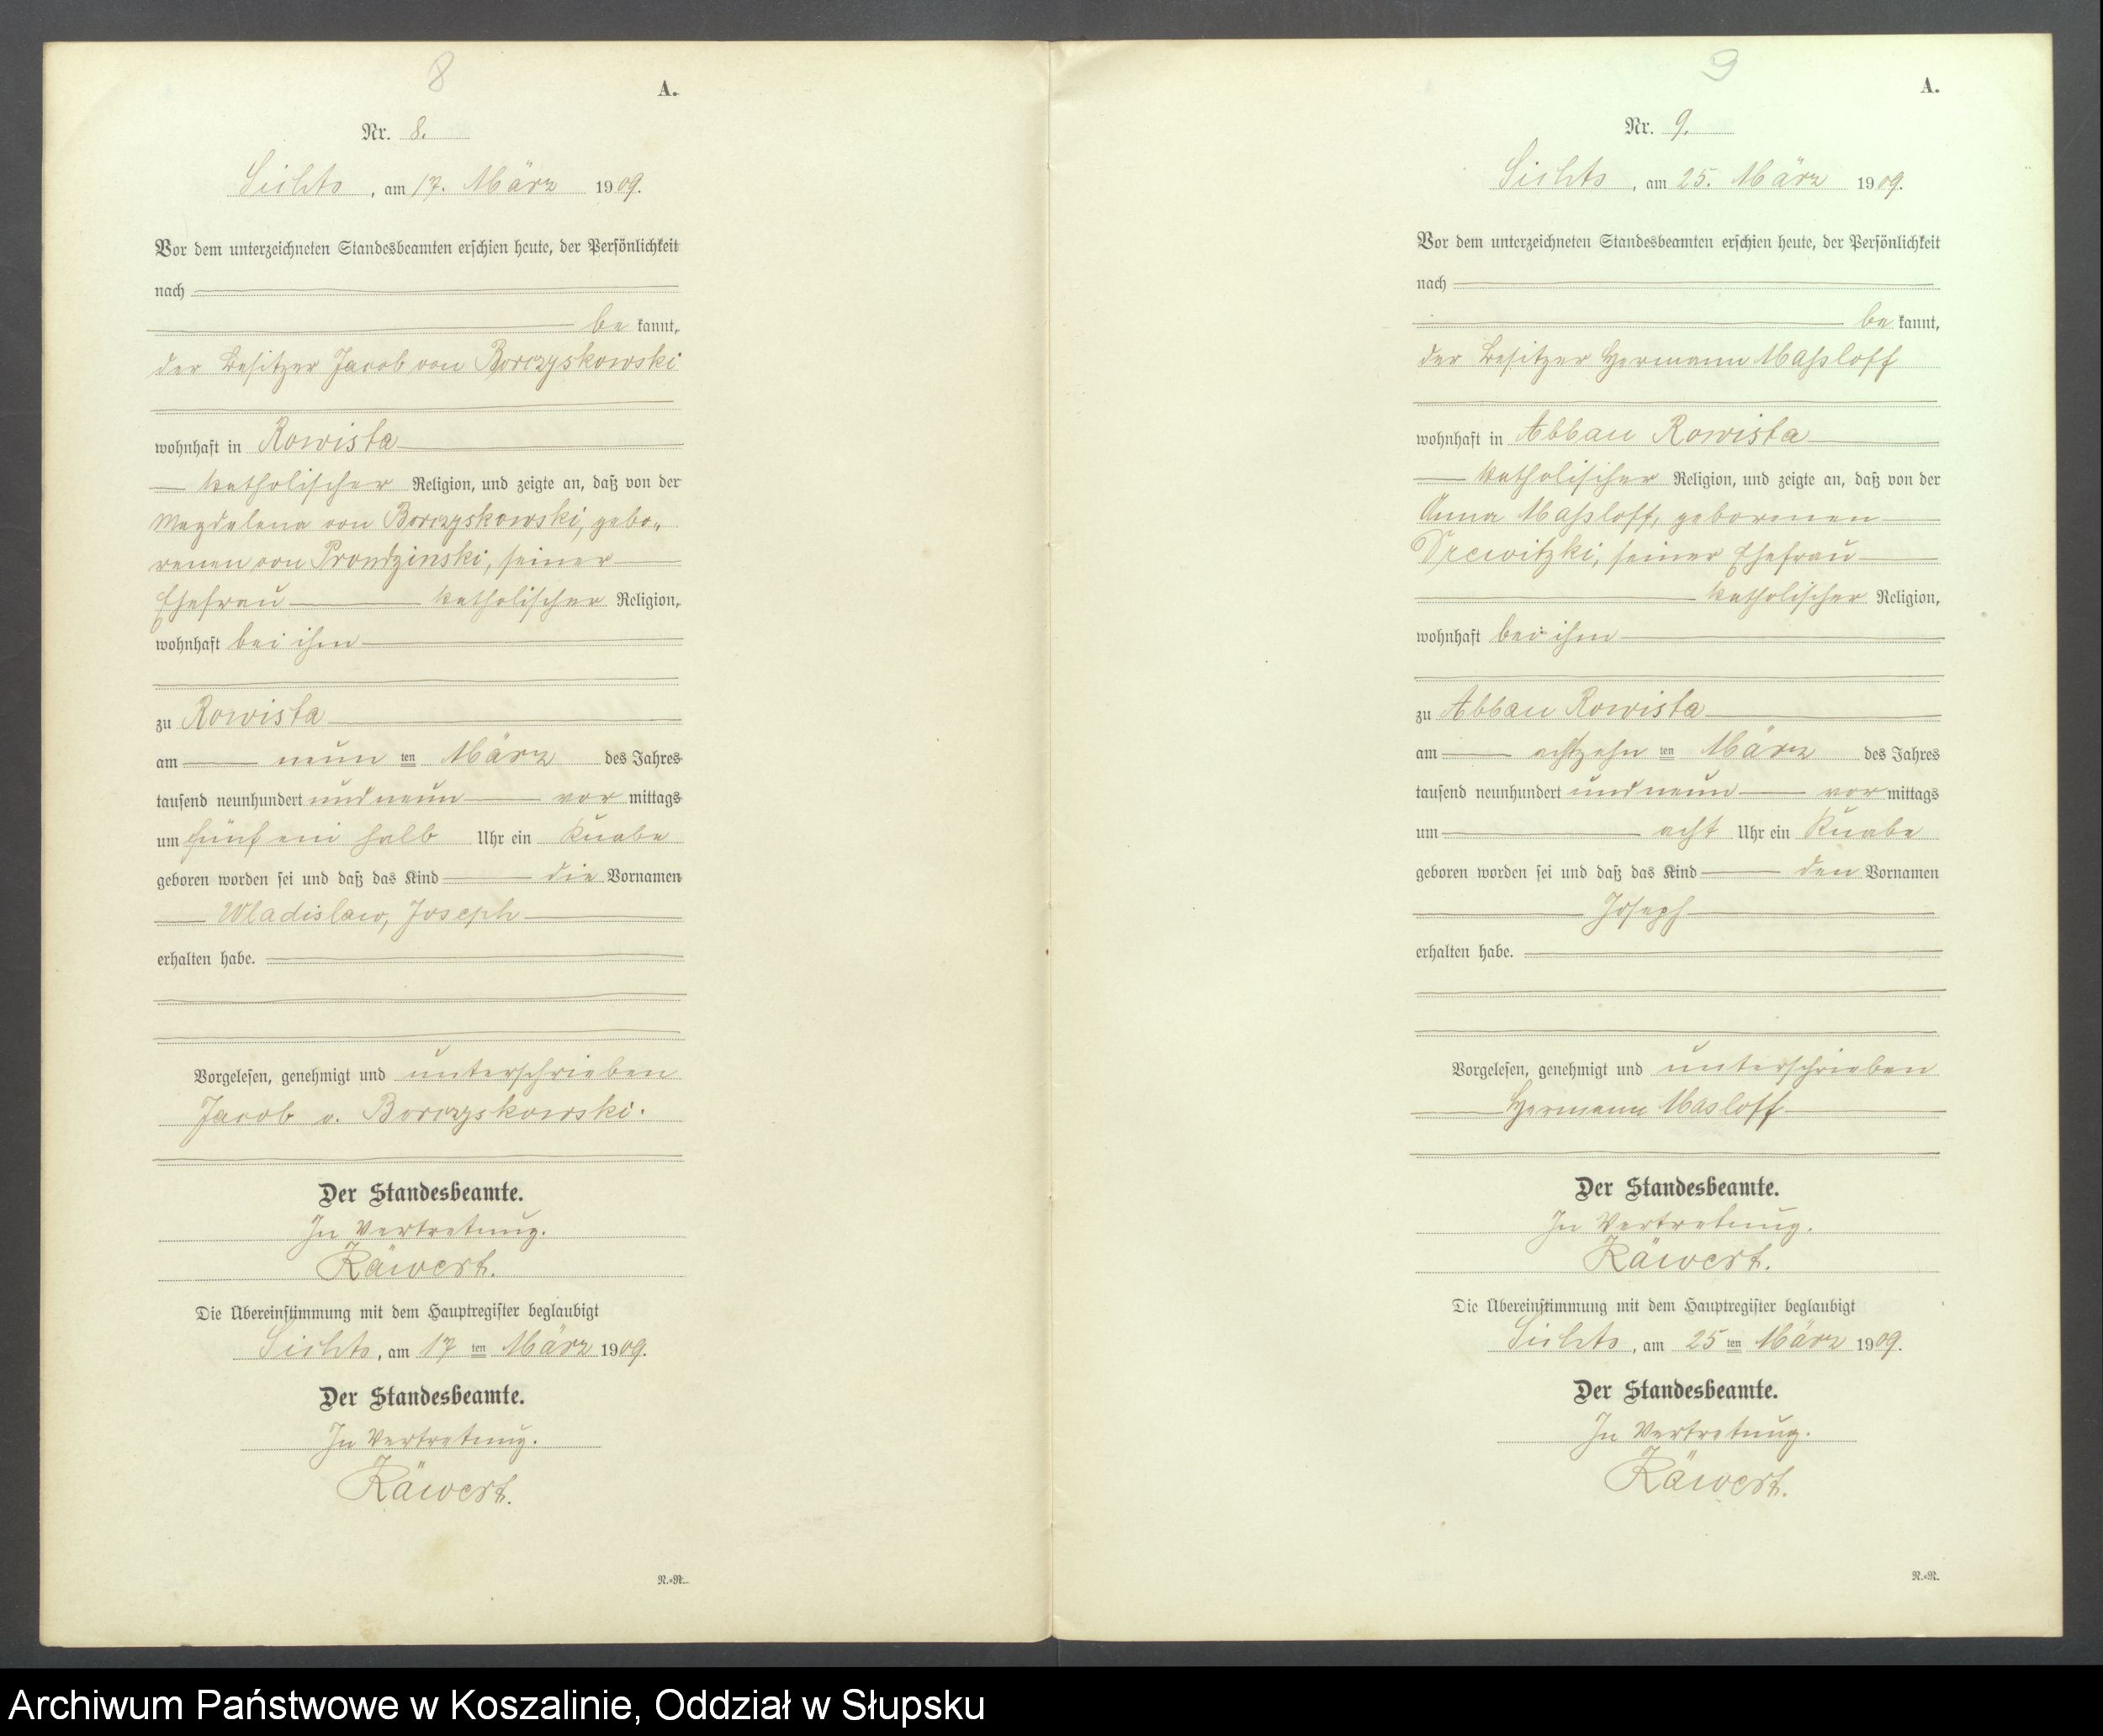 8
A.
Nr. 8.
Lichts, am 17. März 1909.
Vor dem unterzeichneten Standesbeamten erschien heute, der Persönlichkeit
nach
be kannt,
der Besitzer Jacob von Borczyskowski
wohnhaft in Rowista
katholischer Religion, und zeigte an, daß von der
Magdalena von Borczyskowski, gebo„
renen von Prondzinski, seiner
Ehefrau katholischer Religion,
wohnhaft bei ihm
zu Rowista
am neun ten März des Jahres
tausend neunhundert und neun vor mittags
um fünf ein halb Uhr ein Knabe
geboren worden sei und daß das Kind die Vornamen
Wladislaw, Joseph
erhalten habe.
Vorgelesen, genehmigt und unterschrieben
Jacob v. Borczyskowski.
Der Standesbeamte.
In Vertretung.
Räwert.
Die Übereinstimmung mit dem Hauptregister beglaubigt
Lichts, am 17 ten März 1909.
Der Standesbeamte.
In Vertretung.
Räwert.
R.=R.
9
A.
Nr. 9.
Lichts, am 25. März 1909.
Vor dem unterzeichneten Standesbeamten erschien heute, der Persönlichkeit
nach
be kannt,
der Besitzer Hermann Maßloff
wohnhaft in Abbau Rowista
katholischer Religion, und zeigte an, daß von der
Anna Maßloff, geborenen
Drewitzki, seiner Ehefrau
katholischer Religion,
wohnhaft bei ihm
zu Abbau Rowista
am achtzehn ten März des Jahres
tausend neunhundert und neun vor mittags
um acht Uhr ein Knabe
geboren worden sei und daß das Kind den Vornamen
Joseph
erhalten habe.
Vorgelesen, genehmigt und unterschrieben
Hermann Masloff
Der Standesbeamte.
In Vertretung.
Räwert.
Die Übereinstimmung mit dem Hauptregister beglaubigt
Lichts, am 25 ten März 1909.
Der Standesbeamte.
In Vertretung.
Räwert.
R.=R.
Archiwum Państwowe w Koszalinie, Oddział w Słupsku